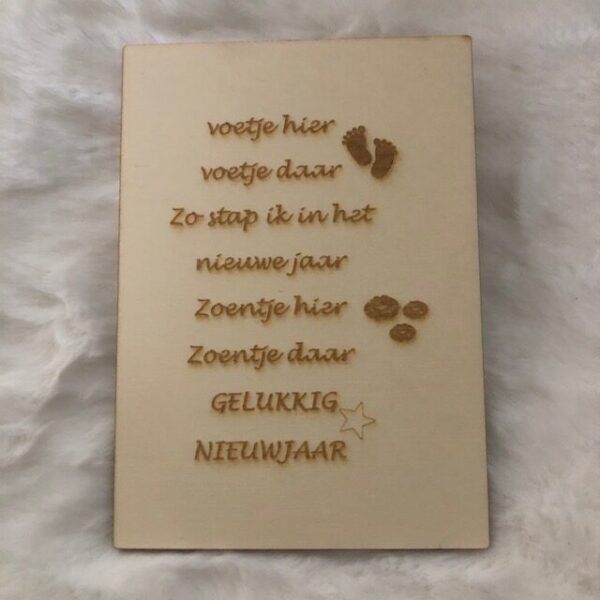 voetje hier
voetje daar
Zo stap ik in het
nieuwe jaar
Zoentje hier
Zoentje daar
GELUKKIG
NIEUWJAAR